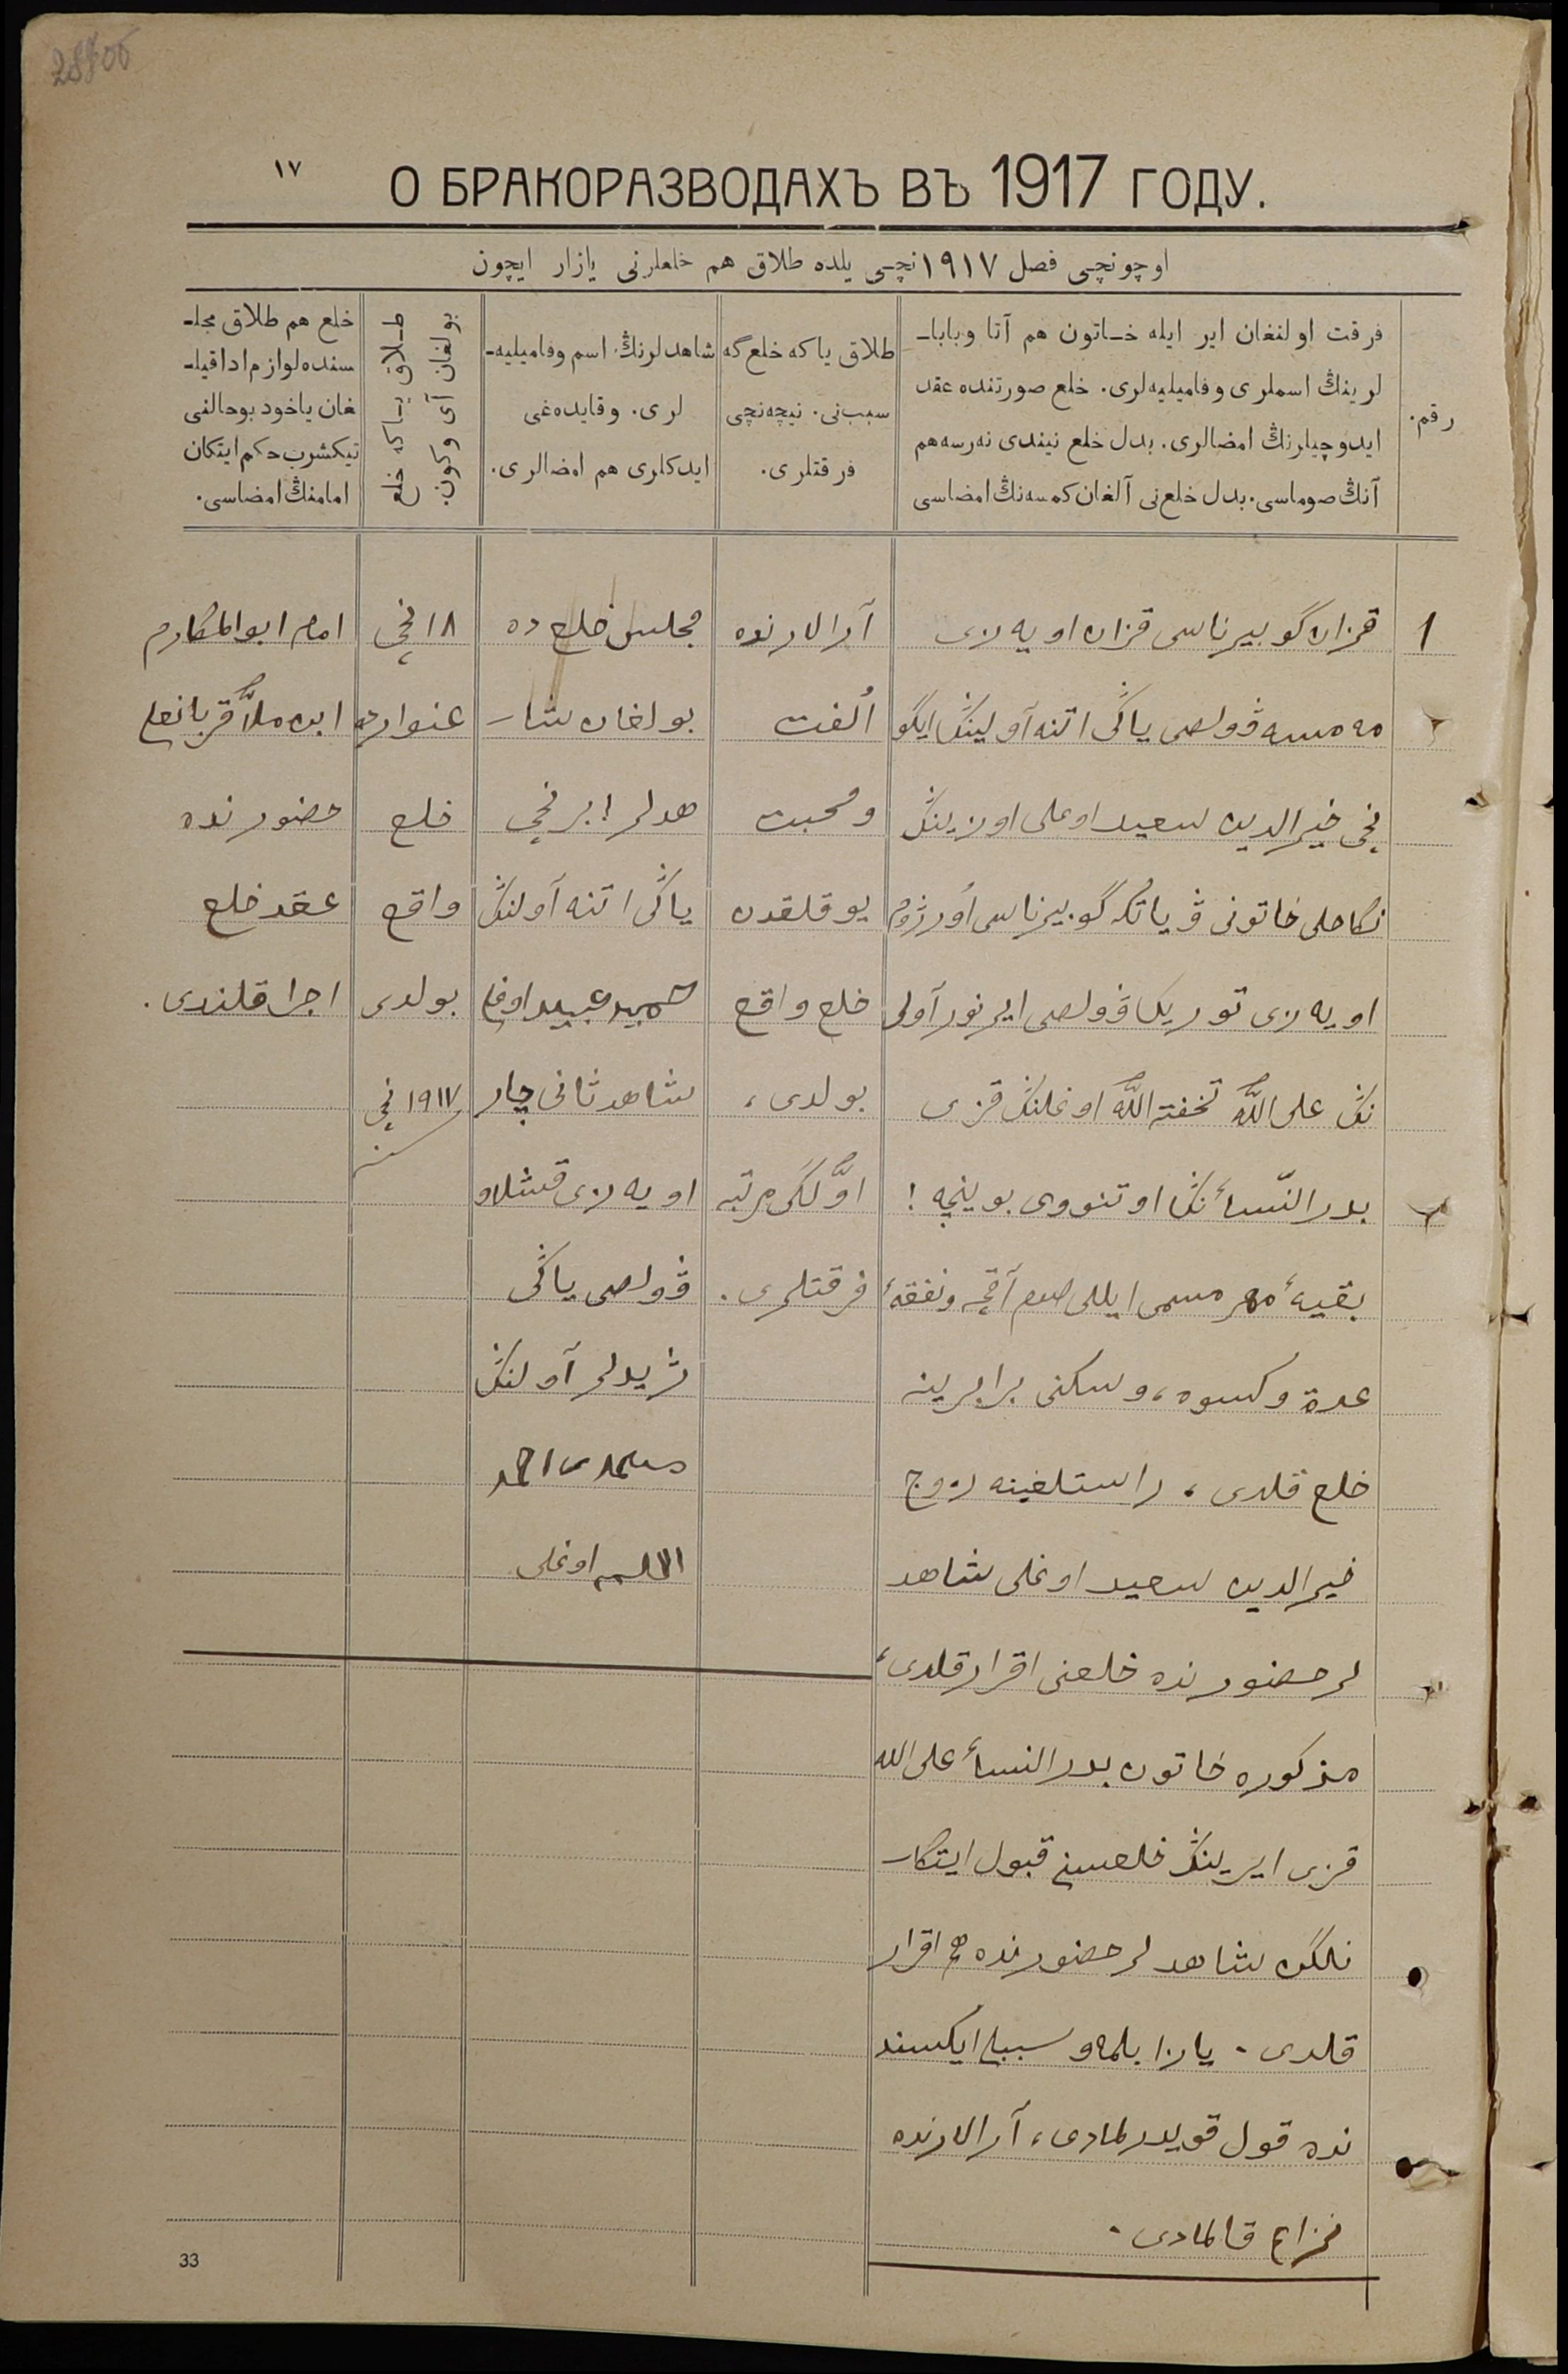 ١٧
О БРАКОРАЗВОДАХЪ ВЪ 1917 ГОДУ.
اوچونچی فصل ١٩١٧نچی یلده طلاق هم خلعلرنی یازار ایچون
رقم.
فرقت اولنغان ایر ایله خاتون هم آتا وبابا-
لرینڭ اسملری وفامیلیه‌لری. خلع صورتنده عقد
ایدوچیلرنڭ امضالری. بدل خلع نیندی نەرسه‌هم
آنڭ صوماسی. بدل خلع‌نی آلغان کمسه‌نڭ امضاسی
طلاق یاکه خلع‌گه
سبب‌نی. نیچه‌نچی
فرقتلری.
شاهدلرنڭ اسم وفامیلیه-
لری. وقایده‌غی
ایدکلری هم امضالری.
طلاق یاکه خلع
بولغان آی وکون.
خلع هم طلاق مجلـ-
سنده لوازم ادا قیلـ-
غان یاخود بوحالنی
تیکشرب حکم ایتکان
امامنڭ امضاسی.
١
قزان گوبیرناسی قزان اویه‌زی
ڤولصی یاڭی اتنه آولینڭ ایگو
نچی خیرالدین سعید اوغلی اوزینڭ
نکاحلی خاتونی ڤیاتکه گوبیرناسی اورژوم
اویه‌زی توریک ڤولصی ایرنور آولی
نڭ علی الله تحفة الله اوغلنڭ قزی
بدر النّساءنڭ اوتنووی بوینچه !
بقیهٔ مهر مسمی ایللی صوم آقچه ونفقهٔ
عدة وکسوه، وسکنی برابرینه
خلع قلدی، راستلغینه زوج
خیرالدین سعید اوغلی شاهد
لر حضورنده خلعنی اقرار قلدی،
مذکوره خاتون بدر النساء علی الله
قزی ایرینڭ خلعسنی قبول ایتکا-
نلگن شاهدلر حضورنده هم اقرار
قلدی. یازا بلمەو سببلی ایکسند
نده قول قویدرلمادی، آرالارنده
نزاع قالمادی.
آرالارنده
اُلفت
ومحبت
یوقلقدن
خلع واقع
بولدی،
اوّلگی مرتبه
فرقتلری.
مجلس خلع ده
بولغان شا-
هدلر ! برنچی
یاڭی اتنه آولنڭ
حمید عبید اوغلی
شاهد ثانی چار
اویه‌زی قشلاو
ڤولصی یاڭی
ژیدلر آولنڭ
اوغلی
١٨ نچی
غنوارده
خلع
واقع
بولدی
١٩١٧ نچی
سنه
امام ابوالمکارم
ابن ملّا قربانعلی
حضورنده
عقد خلع
اجرا قلندی.
33